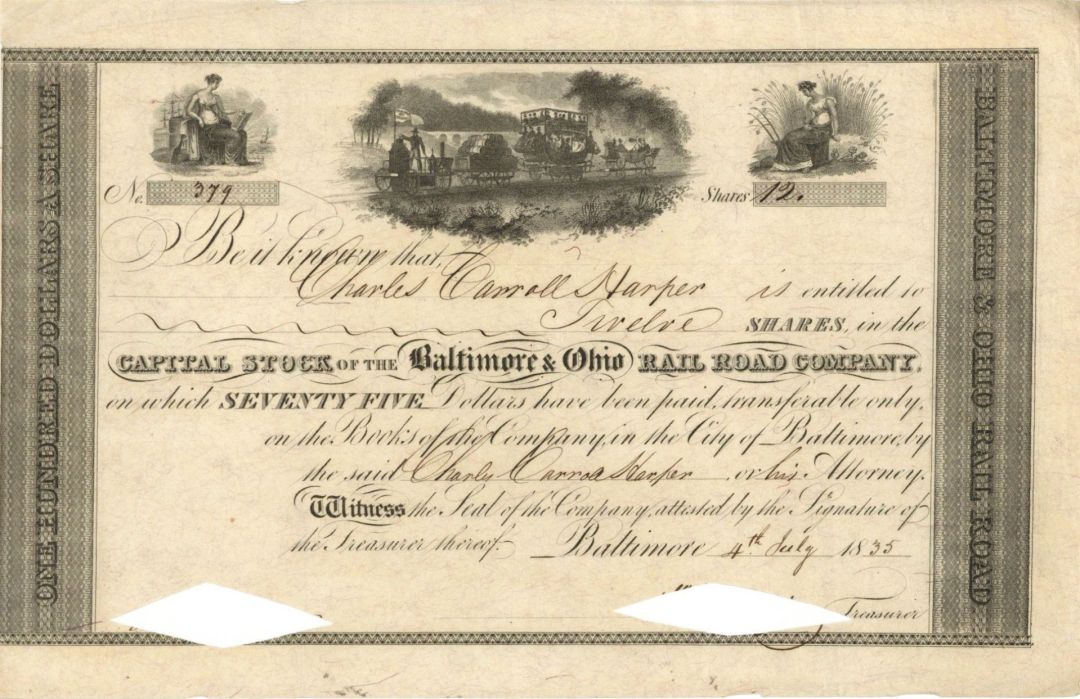 ONE HUNDRED DOLLARS A SHARE
No. 379
Shares 12.
Be it known that,
Charles Carroll Harper is entitled to
Twelve SHARES, in the
CAPITAL STOCK OF THE Baltimore & Ohio RAIL ROAD COMPANY,
on which SEVENTY FIVE Dollars have been paid, transferable only,
on the Books of the Company, in the City of Baltimore, by
the said Charles Carroll Harper or his Attorney.
Witness the Seal of the Company, attested by the Signature of
the Treasurer thereof. Baltimore 4th July 1835
Treasurer
BALTIMORE & OHIO RAIL ROAD